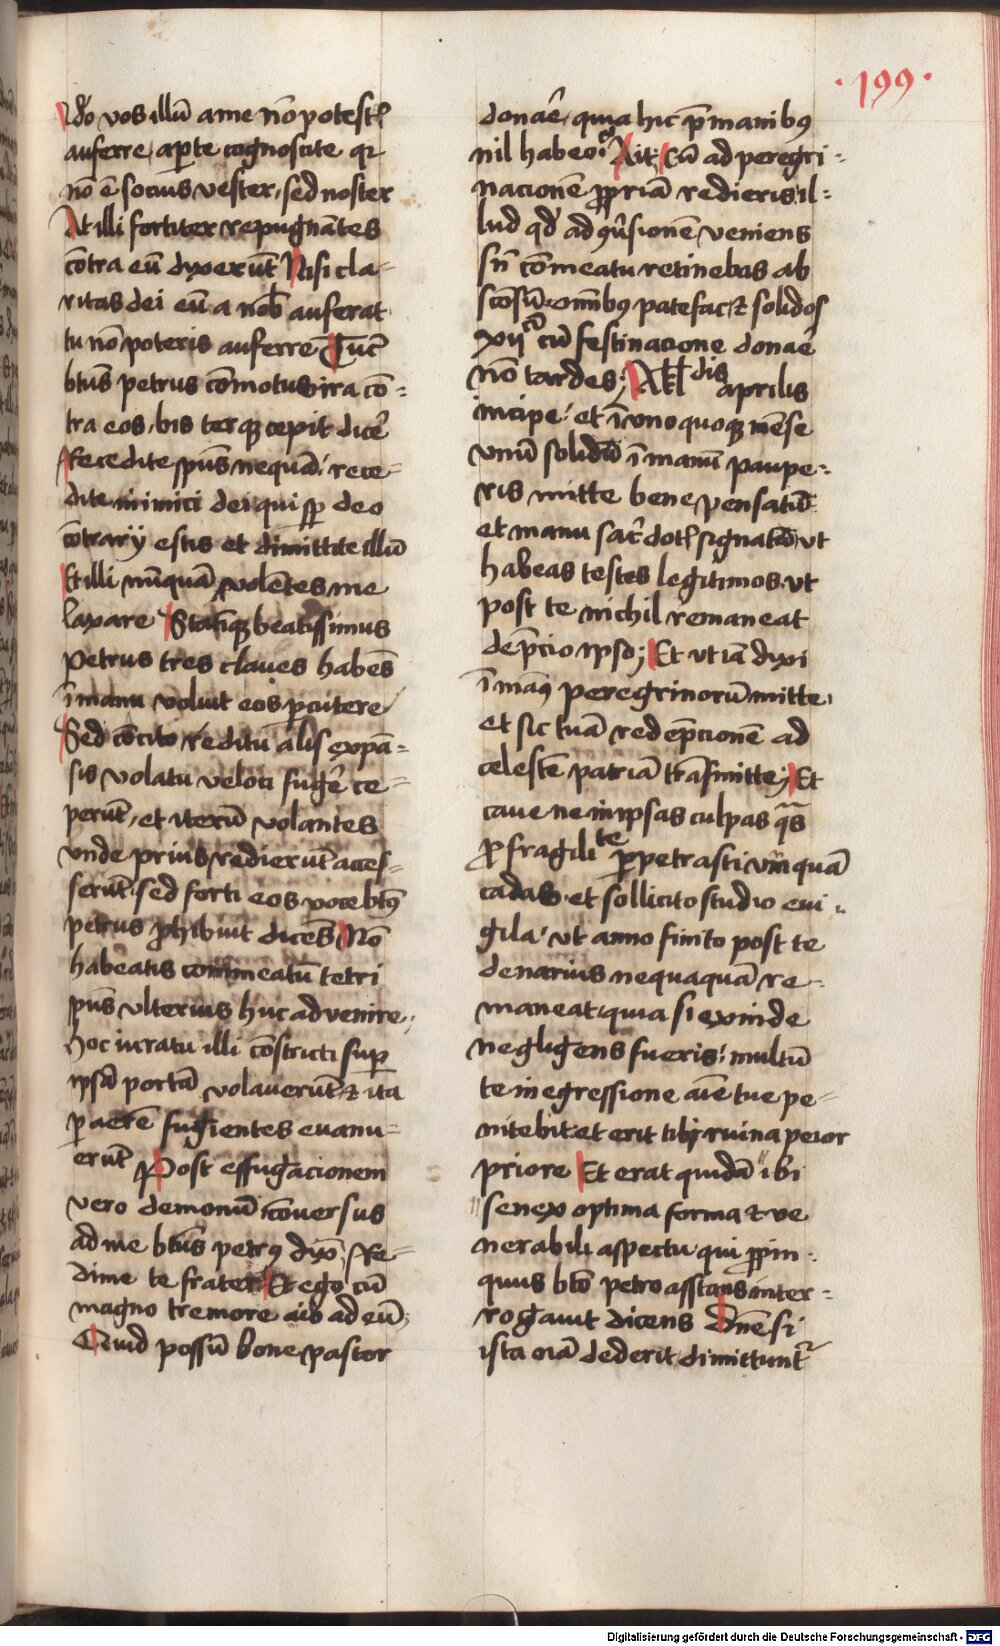 ·199·
Ido vos illū a me nō potestꝭ
auferre, aꝑte cognoscite qꝛ
nō ē socius vester, sed noster
At illi fortiter repugnātes
cōtra eū dyxerūt Nisi cla-
ritas dei eū a nob̄ auferat
tu nō poteris auferre Tūc
btūs petrus cōmotus ira cō-
tra eos, bis terqꝫ cepit dicē
Recedite sp̄us nequā rece-
dite inimici dei qui sp̄ deo
cōtrarÿ estis et dimittite illū
Et illi nūquā volētes me
laxare Statīqꝫ beatissimus
Petrus tres claues habēs
ī manu voluit eos ꝑcutere
Sed cōcito reditu alis expā-
sis volatu veloci fugē ce-
perūt, et iterū volantes
vnde prius redierūt acces-
serūt, sed forti eos voce btūs
petrus ꝓhibuit dicēs Nō
habeatis commeatū tetri
sp̄us vlterius huc advenire,
hoc iuratu illi cōstricti suꝑ
ipsā portā volauerūt ⁊ ita
ꝑ aerē fugientes euanu-
erūt Post effugacionem
vero demonū cōuersus
ad me btūs petrꝰ dyx̄ Re-
dime te frater Et ego cū
magno tremore aio ad eū,
Quid possū bone pastor
donaē, quia hic p̄ manibꝰ
nil habeo Ait Cū ad peregri-
nacionē ꝓpriā redieris il-
lud qd̄ ad ꝯūsionē veniens
sn̄ cōmeatu retinebas ab
scōsū omībꝰ patefac ⁊ solidos
xij cū festinacione donaē
nō tardes; Aklꝭ dis aprilis
incipe, et ī vnoquoqꝫ mēse
vnū solidū ī manū paupe-
ris mitte bene pensatū
et manu sac̄dotꝭ signatū vt
habeas testes legitimos vt
post te nichil remaneat
de p̄cio ipso; Et vt iā dyxi
ī manꝰ peregrinorū mitte,
et sic tuā redēpcionē ad
celestē patriā trāsmitte; Et
caue ne in ipsas culpas qās
ꝓ fragilite ꝑpetrasti vmquā
cadas, et sollicito studio eui-
gila, vt anno finito post te
denarius nequaquā re-
maneat, quia si exinde
negligens fueris, multū
te in egressione aīe tue pe-
nitebit et erit tibi ruina peior
priore Et erat quidā ibi
senex optima forma ⁊ ve
nerabili aspectu qui ꝓpin-
quus bto petro asstans inter-
rogauit dicens Dn̄e si
ista oīa dederit, dimittunt᷑